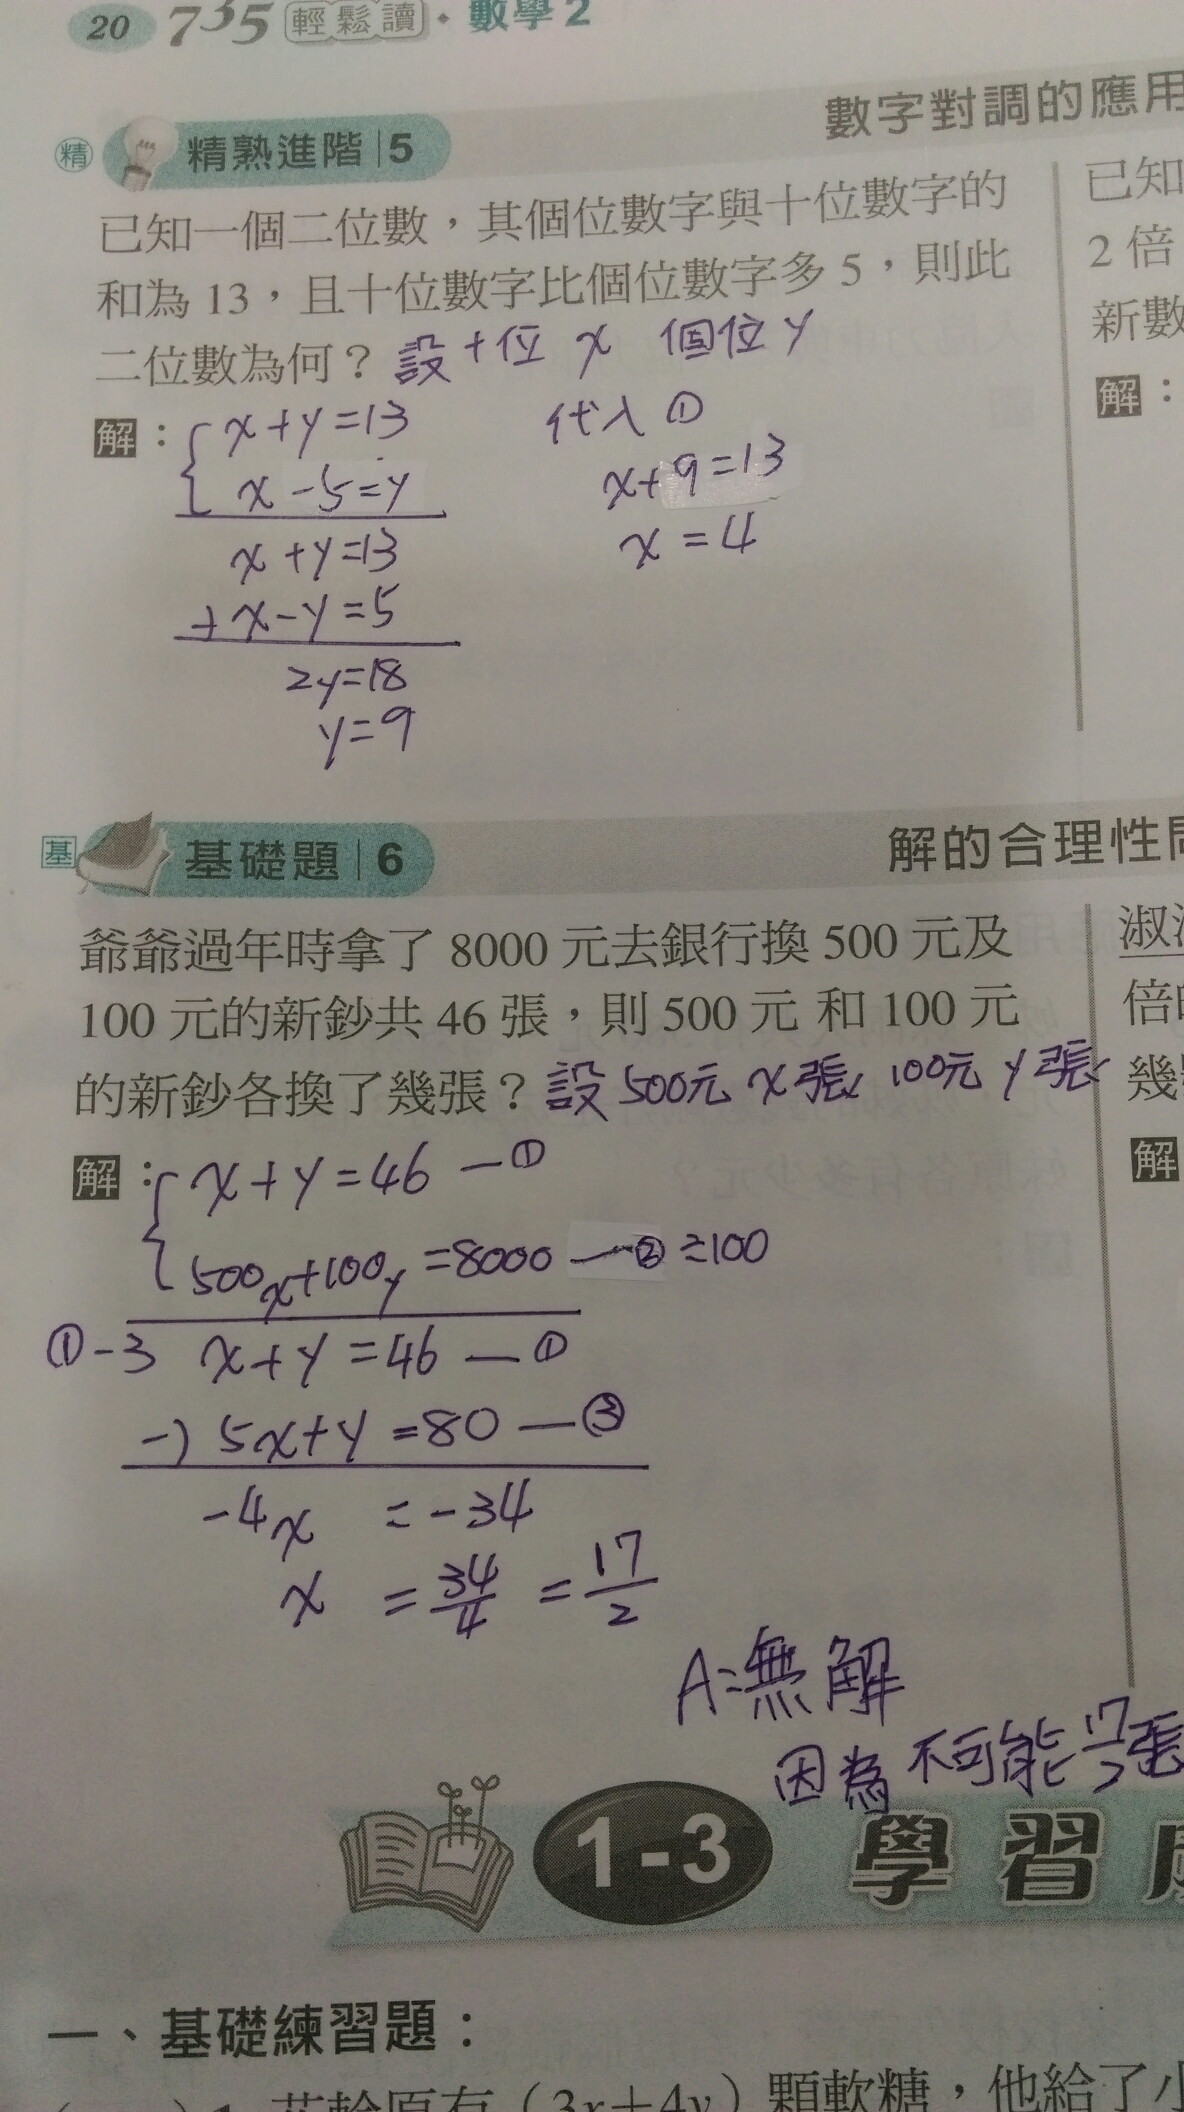 20 735 輕鬆讀・數學2
數字對調的應用
精 精熟進階 | 5
已知一個二位數，其個位數字與十位數字的
和為 13，且十位數字比個位數字多 5，則此
二位數為何？ 設十位 x 個位 y
解：x+y=13
x-5=y
x+y=13
+x-y=5
2y=18
y=9
代入①
x+9=13
x=4
已知
2 倍
新數
解：
基 基礎題 | 6
解的合理性
爺爺過年時拿了 8000 元去銀行換 500 元及
100 元的新鈔共 46 張，則 500 元 和 100 元
的新鈔各換了幾張？ 設500元 x張 100元 y張
解：x+y=46 —①
500x+100y=8000 —② ÷100
①-3 x+y=46 —①
-) 5x+y=80 —③
-4x = -34
x = 34/4 = 17/2
A:無解
因為不可能17/2張
淑
倍
幾
解
1-3 學習
一、基礎練習題：
1. 原有（3x+4y）顆軟糖，他給了小